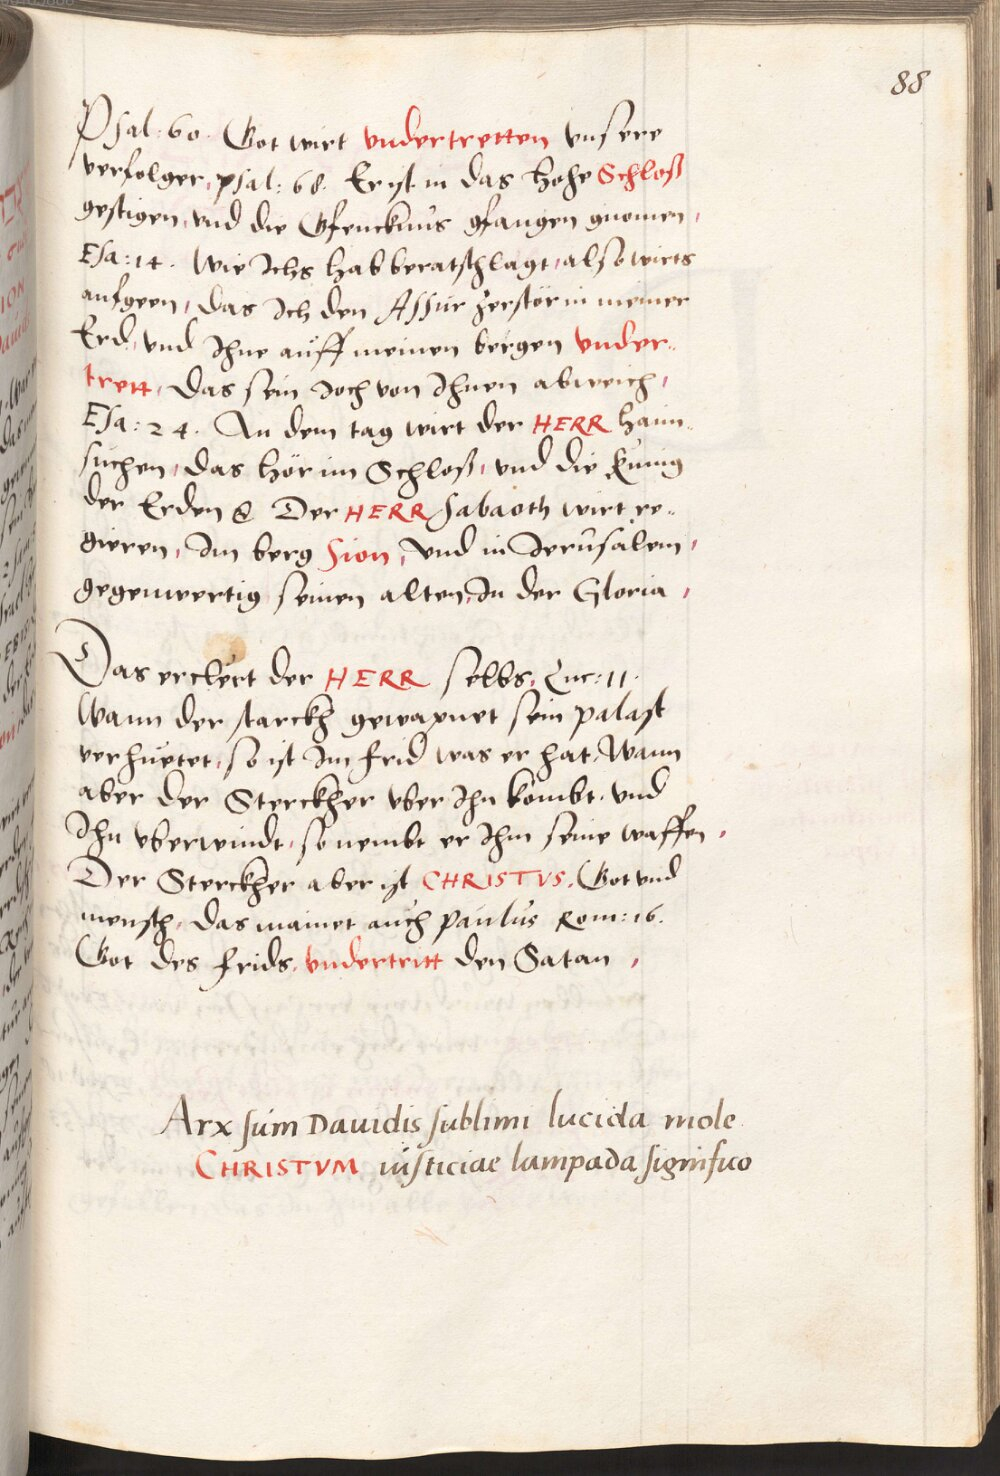 88
Psal: 60. Got wirt vndertretten vnsere
verfolger, psal: 68. Er ist in das hohe Schloß
gestigen, vnd die Gfencknus gfangen gnomen,
Esa: 14. Wie Ichs hab beratschlagt, also wirts
aufgeen, das Ich den Assur zerstör in meiner
Erd, vnd Ihne auff meinen bergen vnder-
trett, das sein Joch von Ihnen abweich,
Esa: 24. An dem tag wirt der HERR haim-
suchen, das hör im Schloß, vnd die Kunig
der Erden & Der HERR Sabaoth wirt re-
gieren, Im berg Sion, vnd in Jerusalem,
gegenwertig seinen alten, In der Gloria,
Das erclert der HERR selbs, Luc: 11.
Wann der starckh gewapnet sein palast
verhuetet, so ist Im frid was er hat, Wann
aber der Sterckher vber Ihn kombt, vnd
Ihn vberwindt, so nembt er Ihm seine waffen,
Der Sterckher aber ist CHRISTVS, Got vnd
mensch, das mainet auch Paulus Rom: 16.
Got des frids, vndertritt den Satan,
Arx sum Dauidis sublimi lucida mole
CHRISTVM iusticiae lampada significo